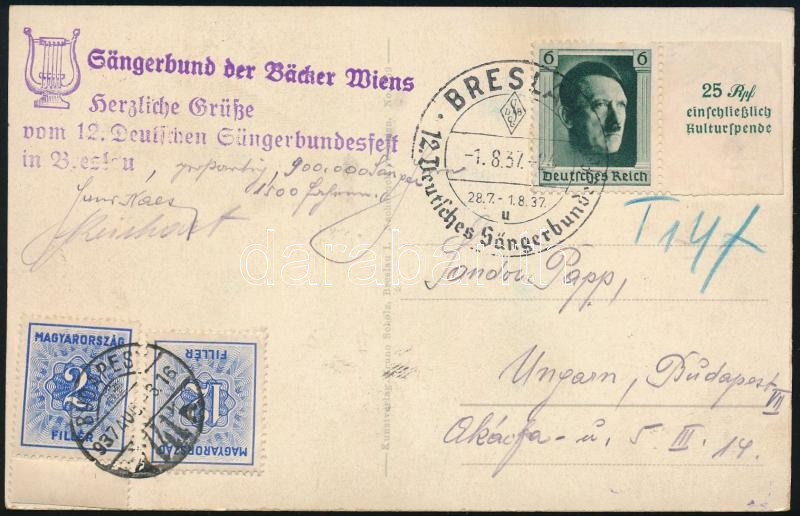 Sängerbund der Bäcker Wiens
Herzliche Grüße
vom 12. Deutschen Sängerbundesfest
in Breslau, großartig, 900.000 Sänger
1500 Fahnen.
BRESLAU
-1.8.37.-
28.7.-1.8.37.
u
12. Deutsches Sängerbundes
6 6
Deutsches Reich
25 Rpf
einschließlich
Kulturspende
T 14
Sandor Papp,
Ungarn, Budapest
VII
Akácfa-u. 5 III. 14.
Kunstverlag Bruno Scholz, Breslau 1,
MAGYARORSZÁG
2
FILLÉR
FILLÉR
12
MAGYARORSZÁG
BUDAPEST
darabanth